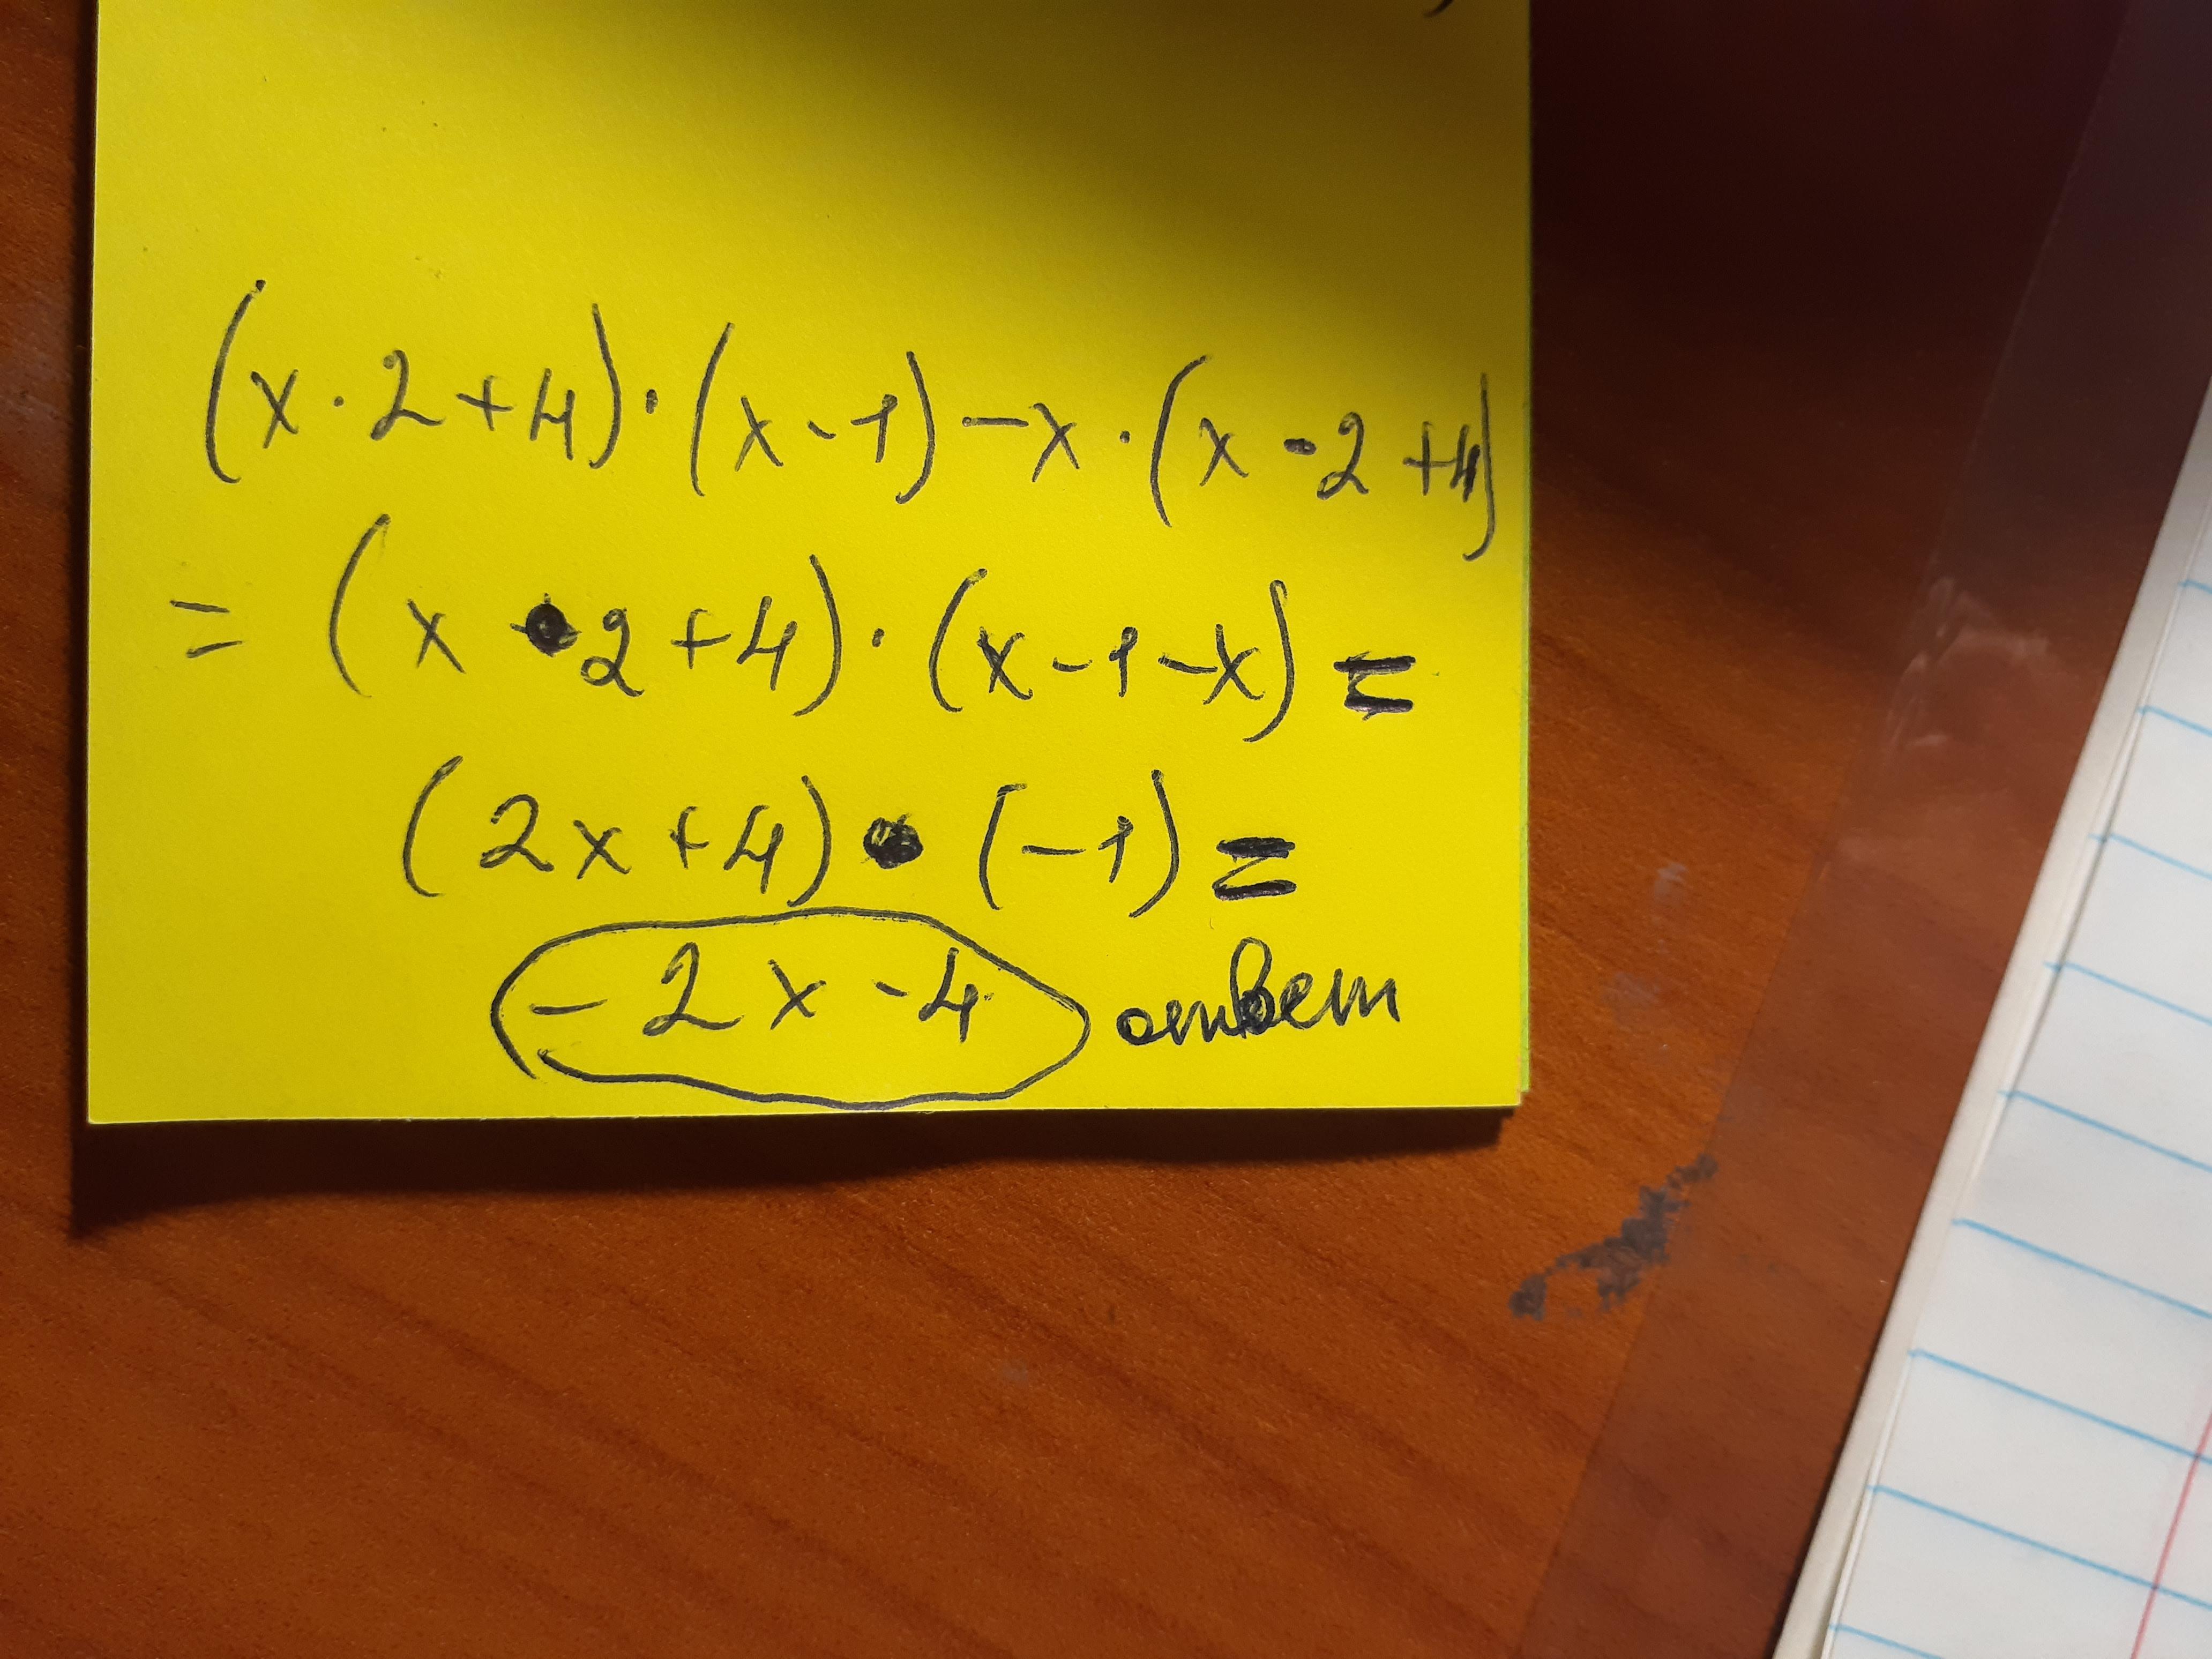 (x · 2 + 4) · (x - 1) - x · (x · 2 + 4)
= (x · 2 + 4) · (x - 1 - x) =
(2x + 4) · (-1) =
- 2x - 4 ответ